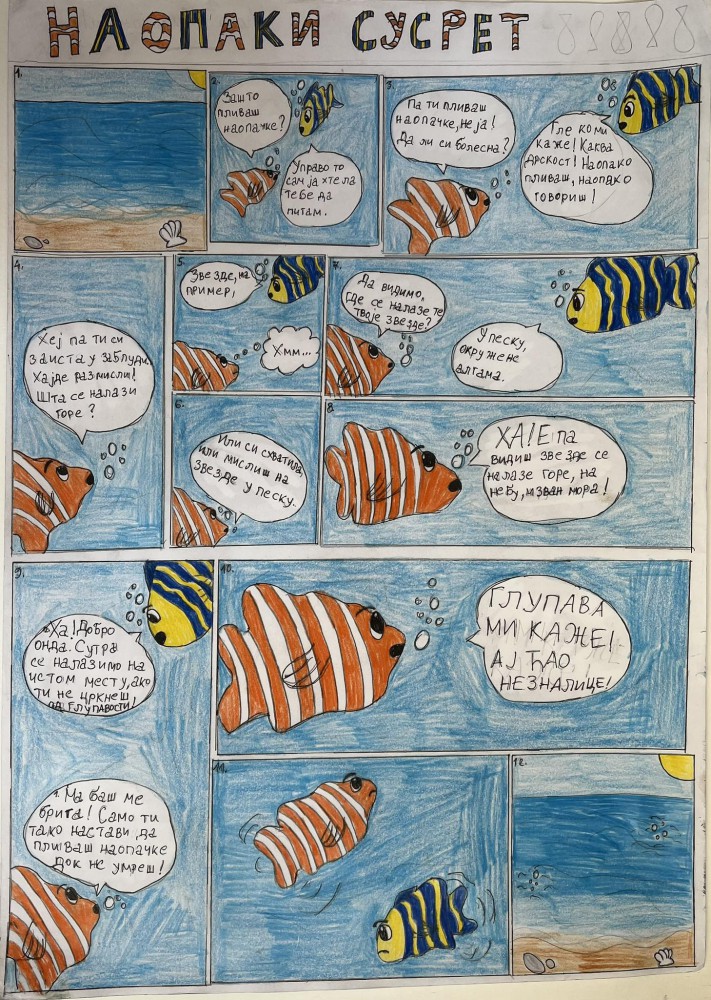 НАОПАКИ СУСРЕТ
1.
2.
Зашто
пливаш
наопачке?
Управо то
сам ја хтела
тебе да
питам.
3.
Па ти пливаш
наопачке, не ја!
Да ли си болесна?
Гле ко ми
каже! Каква
дрскост! Наопако
пливаш, наопако
говориш!
4.
Хеј па ти си
заиста у заблуди.
Хајде размисли!
Шта се налази
горе?
5.
Звезде, на
пример!
Хмм...
6.
Или си схватила,
или мислиш на
звезде у песку.
7.
Да видимо,
где се налазе те
твоје звезде?
У песку,
окружене
алгама.
8.
ХА! Е па
видиш звезде се
налазе горе, на
небу, изван мора!
9.
Ха! Добро
онда. Сутра
се налазимо на
истом месту, ако
ти не цркнеш
од глупавости!
Ма баш ме
брига! Само ти
тако настави, да
пливаш наопачке
док не умреш!
10.
ГЛУПАВА
МИ КАЖЕ!
АЈ ЋАО
НЕЗНАЛИЦЕ!
11.
12.